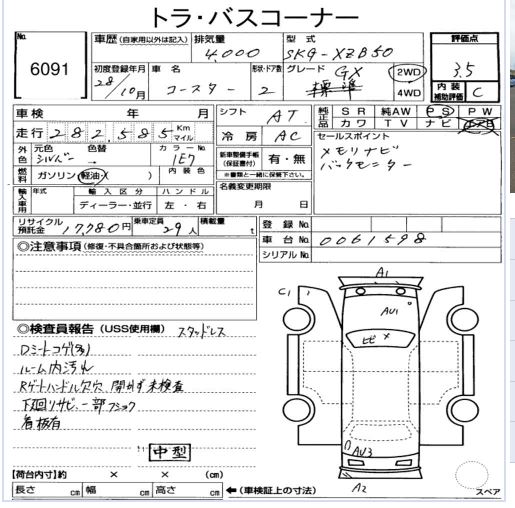 トラ・バスコーナー
No. 6091
車歴 (自家用以外は記入) 排気量 4,000 型式 SKG-XZB50 評価点 3.5
初度登録年月 28/10月 車名 コースター 形状・ドア数 2 グレード GX 標準 2WD 4WD 内装補助評価 C
車検 年 月 シフト AT 純正品 SR 純AW PS PW
走行 282,585 Km マイル 冷房 AC カワ TV ナビ
外色 元色 シルバー 色替 カラーNo. 1E7 新車整備手帳(保証書付) 有・無 ※書類と一緒に保管して下さい。 セールスポイント
燃料 ガソリン 軽油 ( ) 内装色 メモリナビ
輸入車用 年式 輸入区分 ハンドル 名義変更期限 バックモニター
ディーラー・並行 左・右 月 日
リサイクル預託金 17,780円 乗車定員 29人 積載量 t 登録No.
◎注意事項 (修復・不具合箇所および状態等) 車台No. 0061598
シリアルNo.
A1
C1
AU1
ヒビ X
◎検査員報告 (USS使用欄) スタッドレス
Dシートコゲ(多)
ルーム内汚れ
Rゲートハンドル欠穴、開かず未検査
下廻りサビ、一部
看板有
中型
AU3
A2
スペア
【荷台内寸】約 × × (cm)
長さ cm 幅 cm 高さ cm ←(車検証上の寸法)